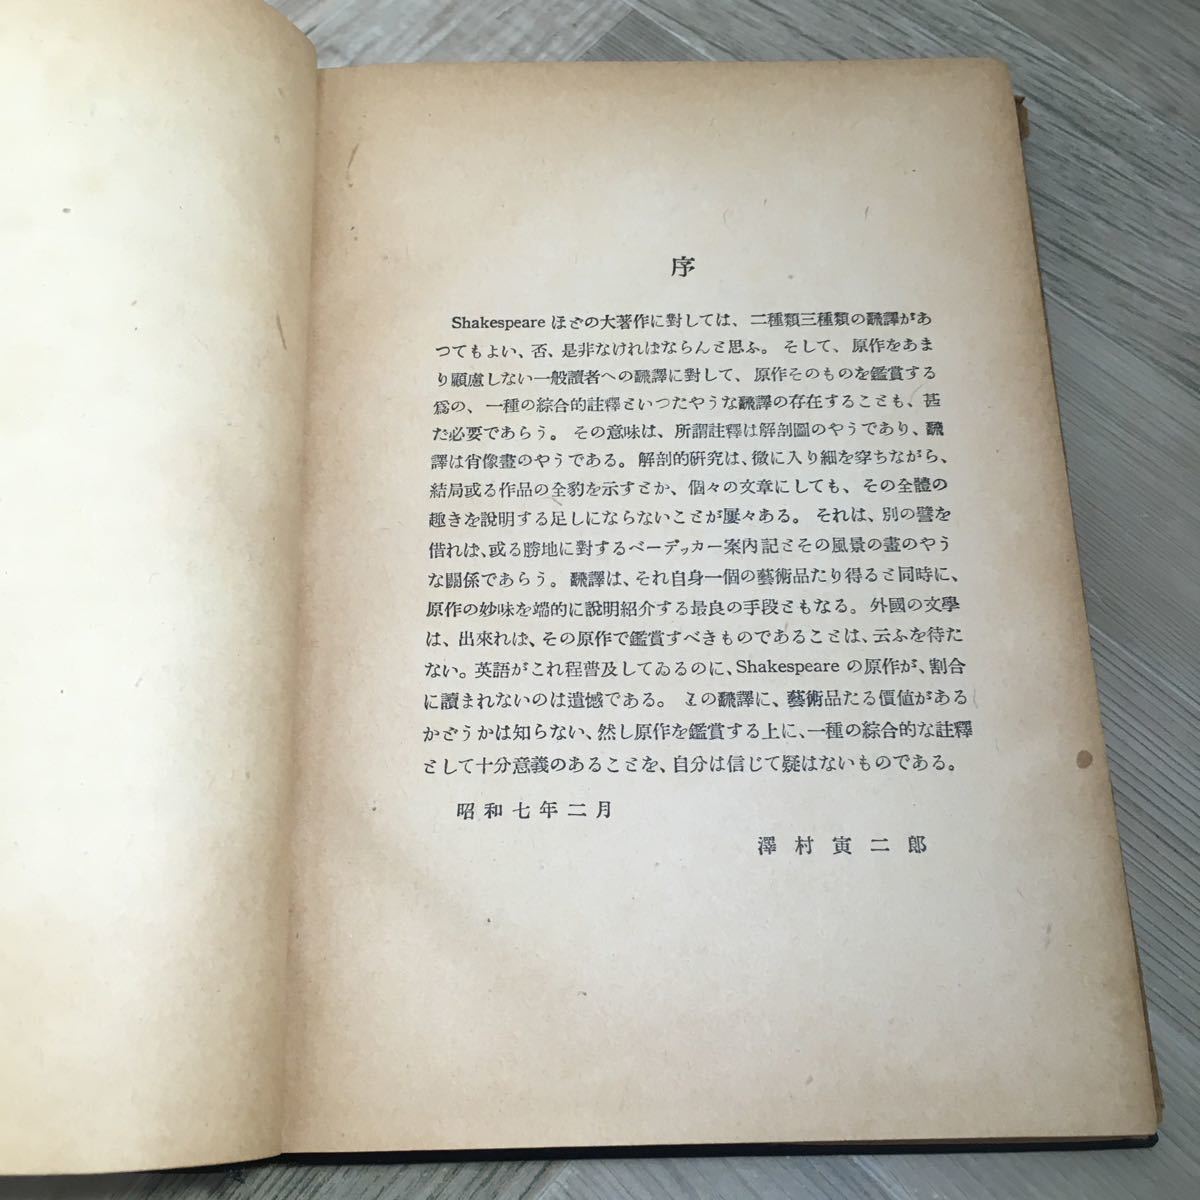 序
Shakespeare ほどの大著作に對しては、二種類三種類の飜譯があ
つてもよい、否、是非なければならんと思ふ。そして、原作をあま
り顧慮しない一般讀者への飜譯に對して、原作そのものを鑑賞する
爲の、一種の綜合的註釋といつたやうな飜譯の存在することも、甚
だ必要であらう。その意味は、所謂註釋は解剖圖のやうであり、飜
譯は肖像畫のやうである。解剖的研究は、微に入り細を穿ちながら、
結局或る作品の全豹を示すとか、個々の文章にしても、その全體の
趣きを說明する足しにならないことが屢々ある。それは、別の譬を
借れば、或る勝地に對するベーデッカー案內記とその風景の畫のやう
な關係であらう。飜譯は、それ自身一個の藝術品たり得ると同時に、
原作の妙味を端的に說明紹介する最良の手段ともなる。外國の文學
は、出來れば、その原作で鑑賞すべきものであることは、云ふを待た
ない。英語がこれ程普及してゐるのに、Shakespeare の原作が、割合
に讀まれないのは遺憾である。この飜譯に、藝術品たる價値がある
かどうかは知らない、然し原作を鑑賞する上に、一種の綜合的な註釋
として十分意義のあることを、自分は信じて疑はないものである。
昭和七年二月
澤村寅二郎